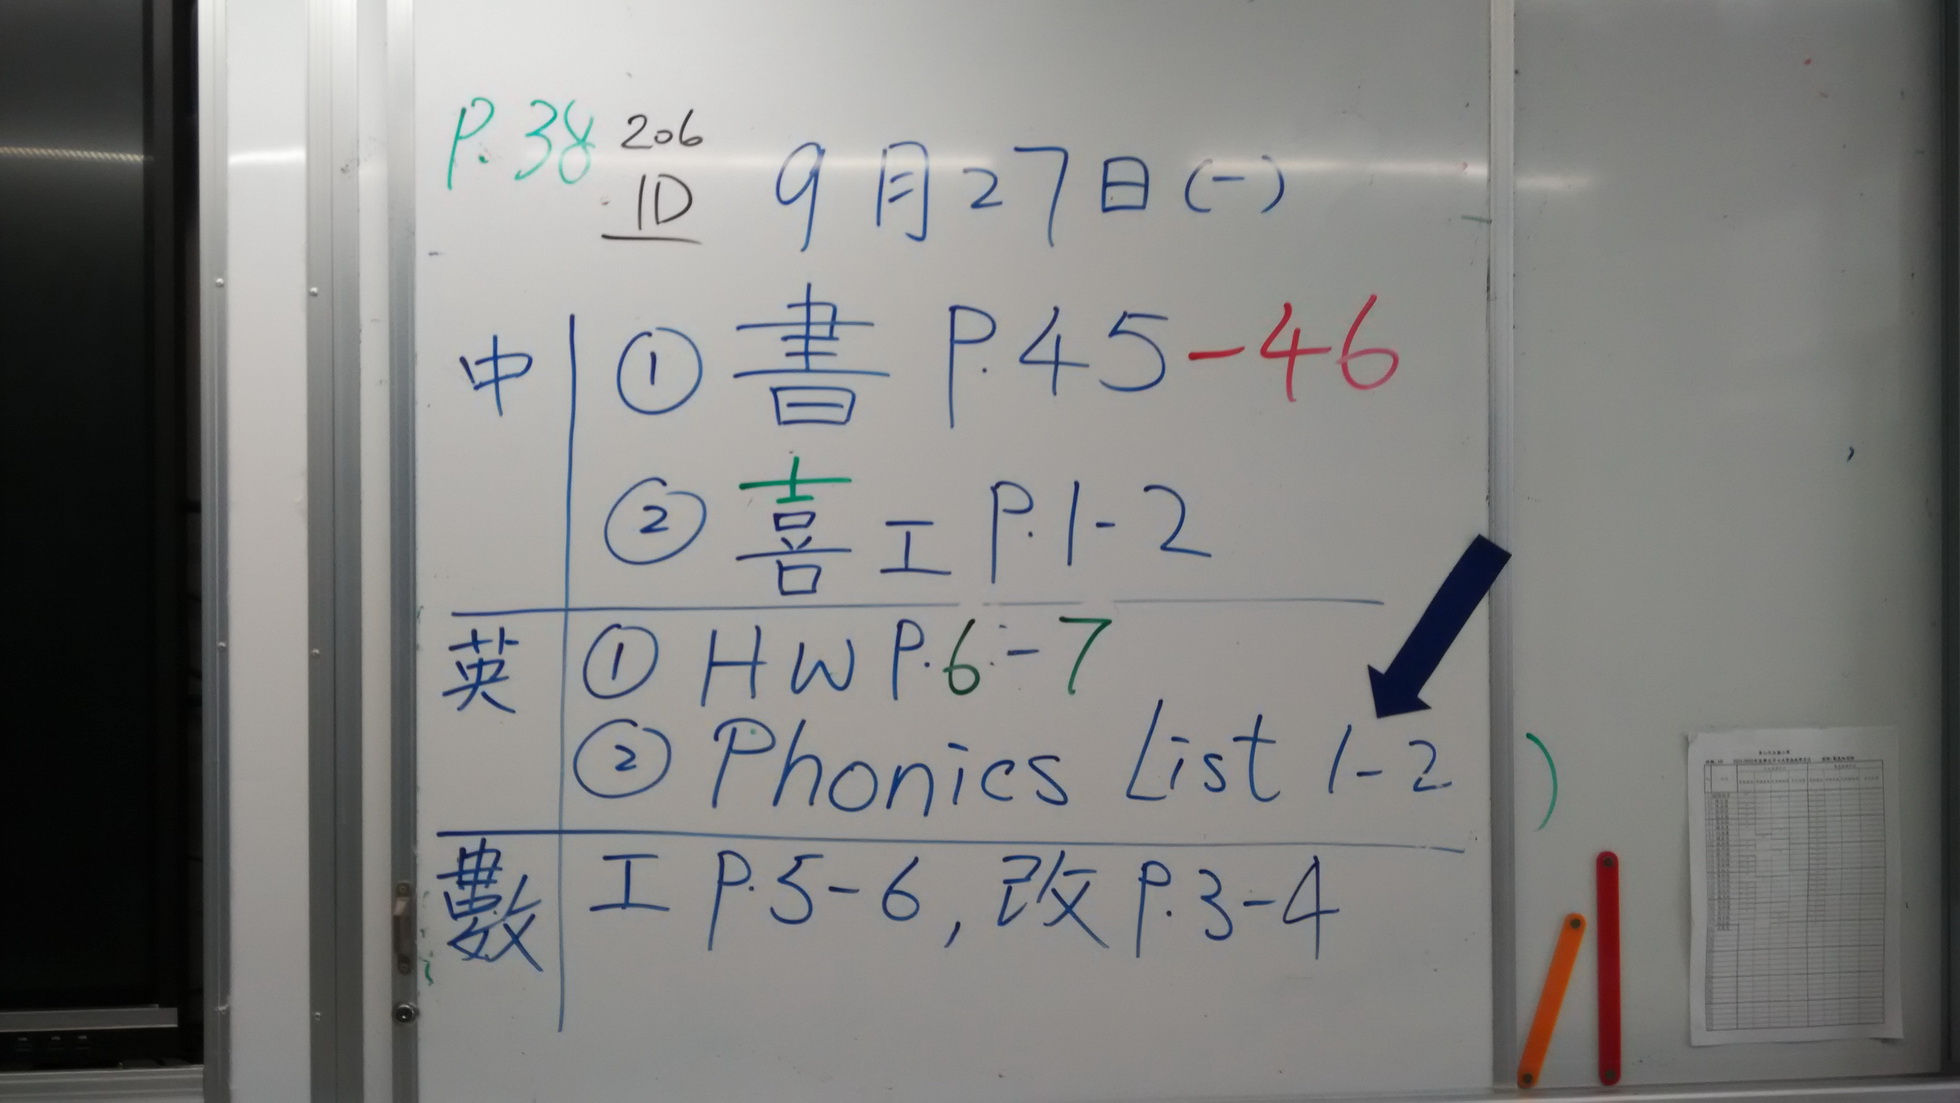 P.38 206 1D 9月27日(一)
中 ① 書 P.45-46
② 喜工 P.1-2
英 ① HW P.6-7
② Phonics List 1-2
數 工 P.5-6, 改 P.3-4